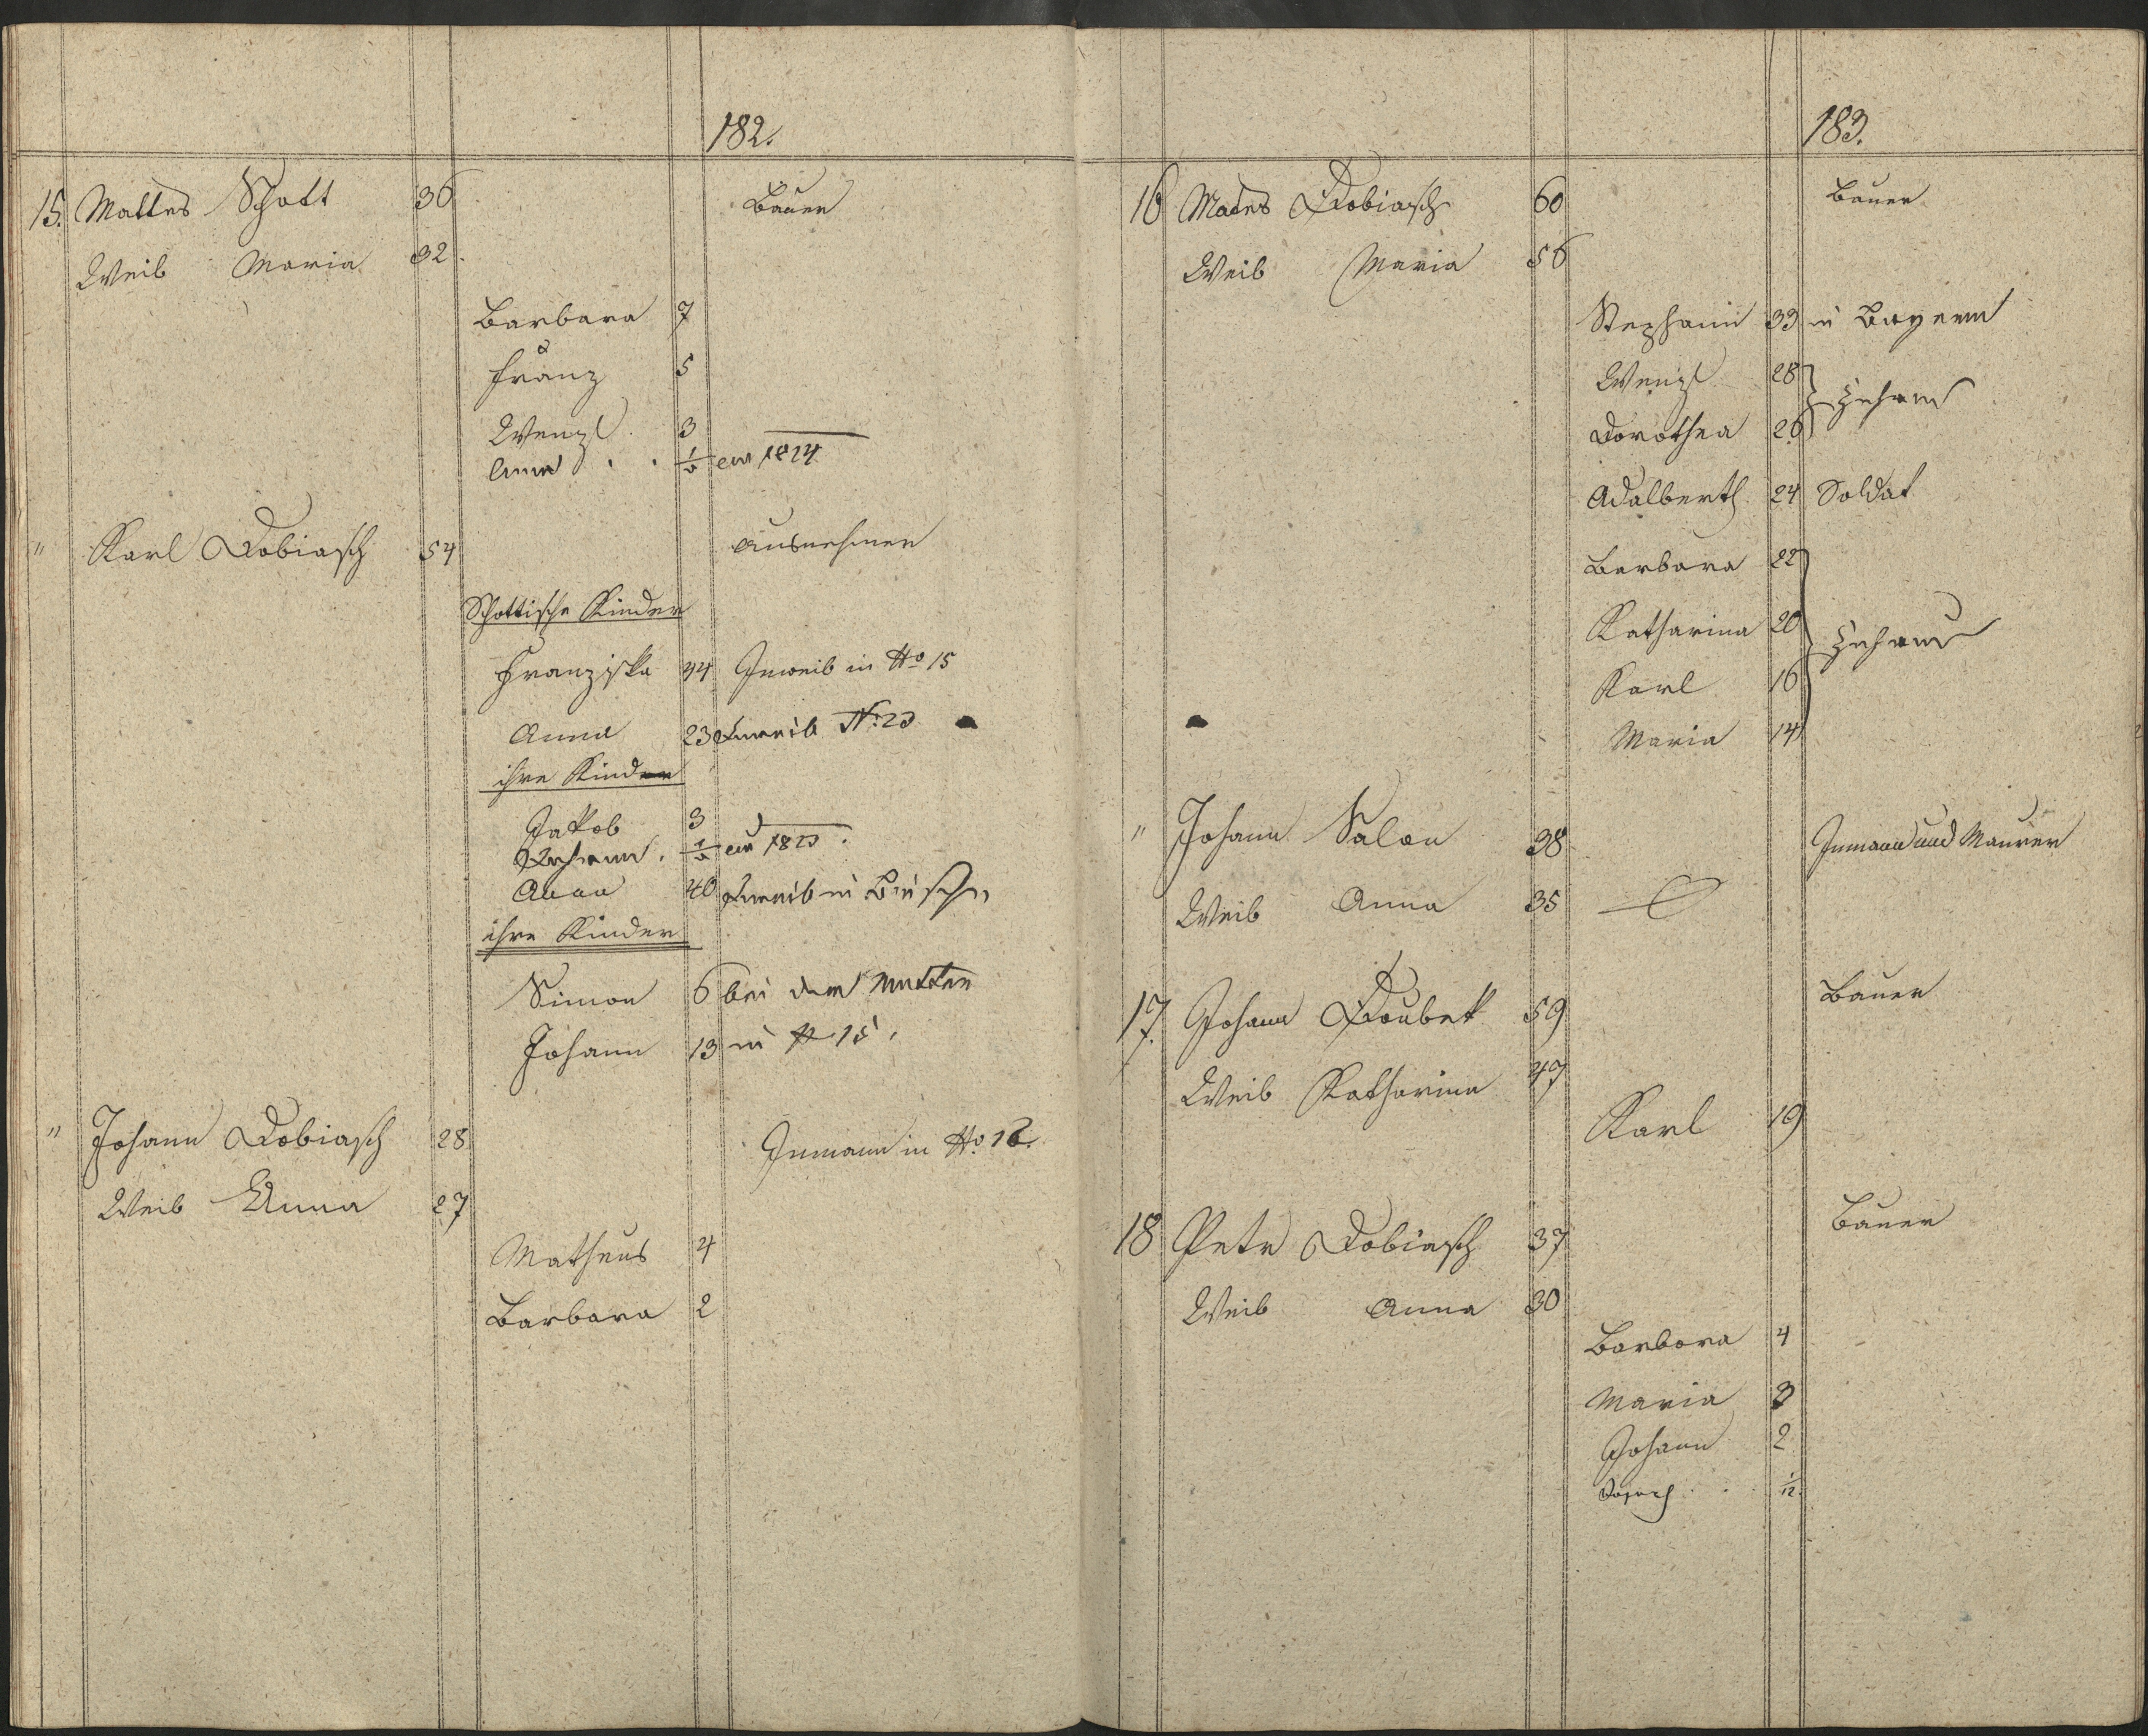 182.
15. Mattes Schott 36 Bauer
Weib Maria 32.
Barbara 7
Franz 5
Wenzl 3
Anna 1824
" Karl Dobiasch 54 Ausnehmer
Schottische Kinder
Franziska 44 Inweib in No 15
Anna 23 Inweib No: 23
ihre Kinder
Jakob 3
Johann
Anna 40 Inweib in
ihre Kinder
Simon 6 bei der Mutter
Johann 13 in 15.
" Johann Dobiasch 28 Inmann in No. 12.
Weib Anna 27
Matheus 4
Barbara 2
183.
16 Mates Dobiasch 60 Bauer
Weib Maria 56
Stephann 33 in Bayern
Wenzl 28
Zuhaus
Dorothea 26
Adalberth 24 Soldat
Barbara 22
Katharina 20
Zuhaus
Karl 16
Maria 14
" Johann Salon 38 Inmann und Maurer
Weib Anna 35
17. Johann Doubek 59 Bauer
Weib Katharina 47
Karl 19
18 Petr Dobiasch 37 Bauer
Weib Anna 30
Barbora 4
Maria 3
Johann 2
Joseph 1/12